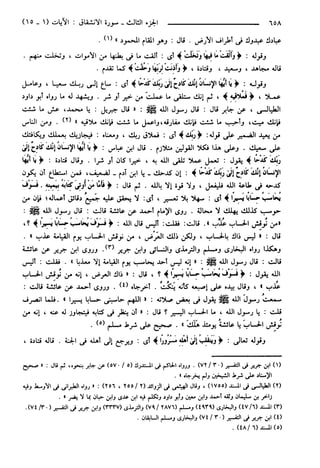 ٦٥٨ الجزء الثالث - سورة الانشقاق : الآيات ( ١ - ١٥ )
عبادك عبدوك فى أطراف الأرض . قال : وهو المقام المحمود » (١) .
وقوله : ﴿ وَأَلْقَتْ مَا فِيهَا وَتَخَلَّتْ ﴾ أى : ألقت ما فى بطنها من الأموات ، وتخلت منهم .
قاله مجاهد ، وسعيد ، وقتادة ، ﴿ وَأَذِنَتْ لِرَبِّهَا وَحُقَّتْ ﴾ كما تقدم .
وقوله : ﴿ يَا أَيُّهَا الإِنسَانُ إِنَّكَ كَادِحٌ إِلَىٰ رَبِّكَ كَدْحًا ﴾ أى : ساع إلى ربك سعيا ، وعامل
عملا ، ﴿ فَمُلاقِيهِ ﴾ ثم إنك ستلقى ما عملت من خير أو شر . ويشهد له ما رواه أبو داود
الطيالسى ، عن جابر قال : قال رسول الله ﷺ : « قال جبريل : يا محمد، عش ما شئت
فإنك ميت، وأحبب ما شئت فإنك مفارقه، واعمل ما شئت فإنك ملاقيه » (٢) . ومن الناس
من يعيد الضمير على قوله: ﴿ رَبِّكَ ﴾ أى : فملاق ربك ، ومعناه : فيجازيك بعملك ويكافئك
على سعيك . وعلى هذا فكلا القولين متلازم . قال ابن عباس : ﴿ يَا أَيُّهَا الإِنسَانُ إِنَّكَ كَادِحٌ إِلَىٰ
رَبِّكَ كَدْحًا ﴾ يقول : تعمل عملا تلقى الله به ، خيرا كان أو شرا . وقال قتادة : ﴿ يَا أَيُّهَا
الإِنسَانُ إِنَّكَ كَادِحٌ إِلَىٰ رَبِّكَ كَدْحًا ﴾ : إن كدحك ـ يا ابن آدم ـ لضعيف، فمن استطاع أن يكون
كدحه فى طاعة الله فليفعل ، ولا قوة إلا بالله . ثم قال : ﴿ فَأَمَّا مَنْ أُوتِيَ كِتَابَهُ بِيَمِينِهِ . فَسَوْفَ
يُحَاسَبُ حِسَابًا يَسِيرًا ﴾ أى : سهلا بلا تعسير ، أى : لا يحقق عليه جميع دقائق أعماله؛ فإن من
حوسب كذلك يهلك لا محالة . روى الإمام أحمد عن عائشة قالت : قال رسول الله ﷺ :
«من نُوقش الحساب عُذِّب ». قالت: فقلت: أليس قال الله : ﴿ فَسَوْفَ يُحَاسَبُ حِسَابًا يَسِيرًا ﴾ ؟ ،
قال : « ليس ذاك بالحساب ، ولكن ذلك العَرْض ، من نوقش الحساب يوم القيامة عذب » .
وهكذا رواه البخارى ومسلم والترمذى والنسائى وابن جرير (٣) . وروى ابن جرير عن عائشة
قالت : قال رسول الله ﷺ : « إنه ليس أحد يحاسب يوم القيامة إلا معذبا » . فقلت : أليس
الله يقول : ﴿ فَسَوْفَ يُحَاسَبُ حِسَابًا يَسِيرًا ﴾ ؟ ، قال : « ذاك العرض ، إنه من نُوقش الحساب
عُذِّب » ، وقال بيده على إصبعه كأنه يَنكُتُ . أخرجاه (٤) . وروى أحمد عن عائشة قالت :
سمعتُ رسولَ الله ﷺ يقول فى بعض صلاته : « اللهم حاسبنى حسابا يسيرا » . فلما انصرف
قلت : يا رسول الله ، ما الحساب اليسير ؟ قال : « أن ينظر فى كتابه فيتجاوز له عنه ، إنه من
نُوقش الحسابَ يا عائشة يومئذ هَلَكَ » . صحيح على شرط مسلم (٥) .
وقوله تعالى : ﴿ وَيَنقَلِبُ إِلَىٰ أَهْلِهِ مَسْرُورًا ﴾ أى : ويرجع إلى أهله فى الجنة . قاله قتادة ،
(١) ابن جرير فى التفسير (٣٠ / ٧٢) . ورواه الحاكم فى المستدرك (٤ / ٥٧٠) عن جابر بنحوه، ثم قال : « صحيح
الإسناد على شرط الشيخين ولم يخرجاه » .
(٢) الطيالسى فى المسند (١٧٥٥) ، وقال الهيثمى فى الزوائد (٢ / ٢٥٥ ، ٢٥٦) : « رواه الطبرانى فى الأوسط وفيه
زافر بن سليمان وثقه أحمد وابن معين وأبو داود وتكلم فيه ابن عدى وابن حبان بما لا يضر » .
(٣) المسند (٦ / ٤٧) والبخارى (٤٩٣٩) ومسلم (٢٨٧٦ / ٧٩) والترمذى (٣٣٣٧) وابن جرير فى التفسير (٣٠ / ٧٤).
(٤) ابن جرير فى التفسير (٣٠ / ٧٤) والبخارى ومسلم السابقان .
(٥) المسند (٦ / ٤٨) .